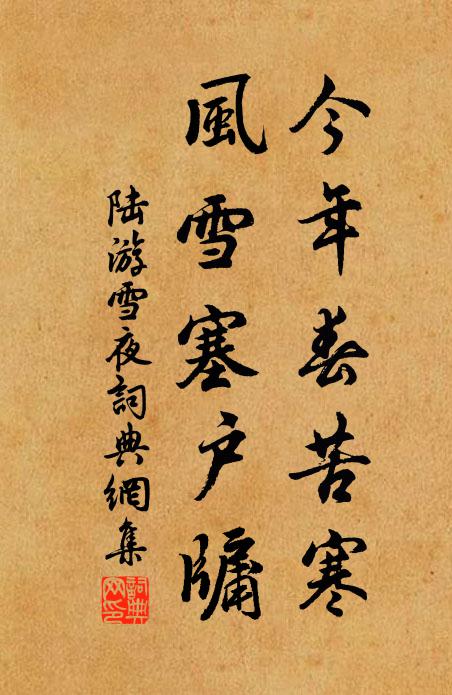 今年春苦寒
風雪塞户牖
陆游雪夜詞典網集
詞典網印